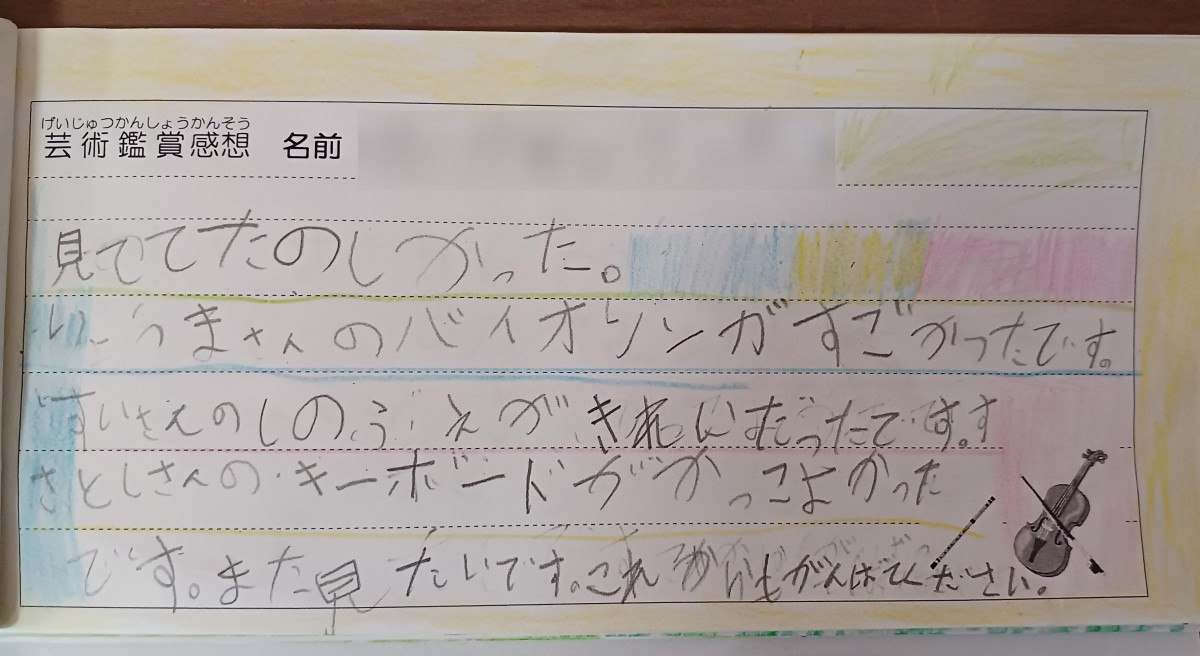 げいじゅつかんしょうかんそう
芸術鑑賞感想 名前
見ててたのしかった。
りょうまさんのバイオリンがすごかったです。
すいさんのしのぶえがきれいだったです。す
さとしさんのキーボードがかっこよかった
です。また見たいです。これからもがんばてください。